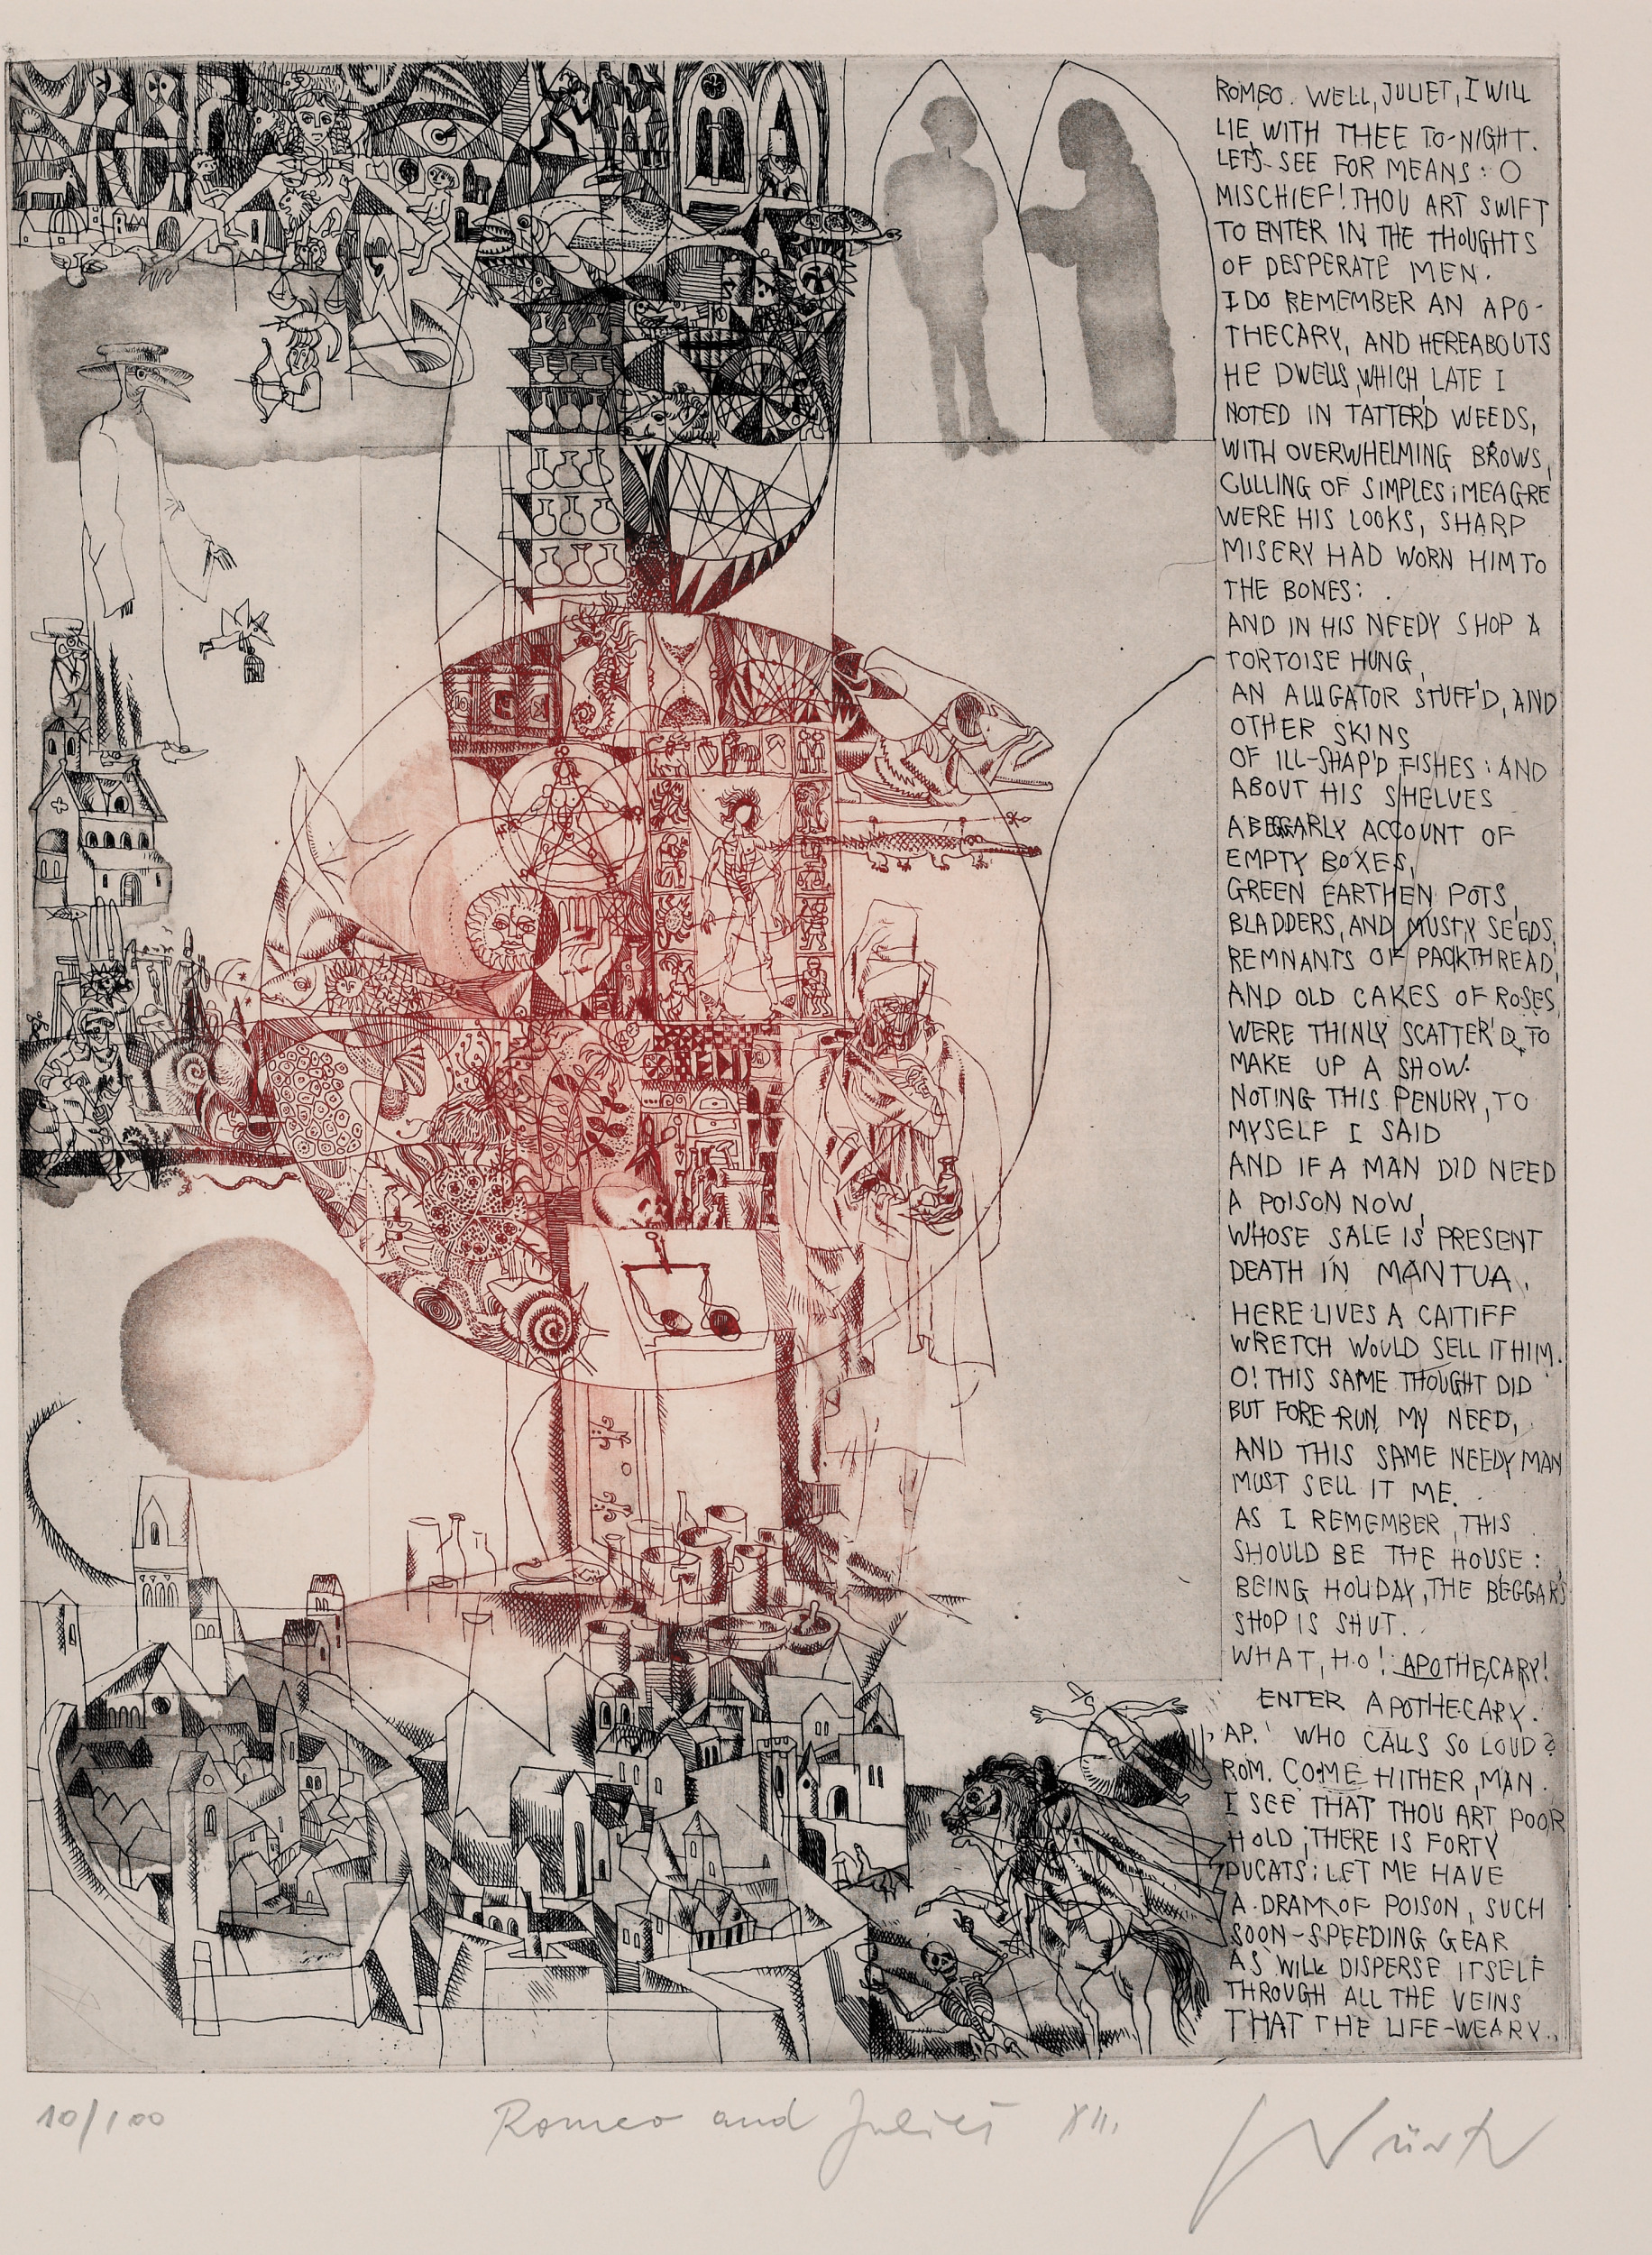 ROMEO. WELL, JULIET, I WILL
LIE WITH THEE TO-NIGHT.
LET'S SEE FOR MEANS: O
MISCHIEF! THOU ART SWIFT
TO ENTER IN THE THOUGHTS
OF DESPERATE MEN.
I DO REMEMBER AN APO-
THECARY, AND HEREABOUTS
HE DWELLS, WHICH LATE I
NOTED IN TATTER'D WEEDS,
WITH OVERWHELMING BROWS,
CULLING OF SIMPLES; MEAGRE
WERE HIS LOOKS, SHARP
MISERY HAD WORN HIM TO
THE BONES:
AND IN HIS NEEDY SHOP A
TORTOISE HUNG,
AN ALLIGATOR STUFF'D, AND
OTHER SKINS
OF ILL-SHAP'D FISHES; AND
ABOUT HIS SHELVES
A BEGGARLY ACCOUNT OF
EMPTY BOXES,
GREEN EARTHEN POTS,
BLADDERS, AND MUSTY SEEDS,
REMNANTS OF PACKTHREAD,
AND OLD CAKES OF ROSES,
WERE THINLY SCATTER'D, TO
MAKE UP A SHOW.
NOTING THIS PENURY, TO
MYSELF I SAID
AND IF A MAN DID NEED
A POISON NOW,
WHOSE SALE IS PRESENT
DEATH IN MANTUA,
HERE LIVES A CAITIFF
WRETCH WOULD SELL IT HIM.
O! THIS SAME THOUGHT DID
BUT FORE-RUN MY NEED,
AND THIS SAME NEEDY MAN
MUST SELL IT ME.
AS I REMEMBER, THIS
SHOULD BE THE HOUSE:
BEING HOLIDAY, THE BEGGAR'S
SHOP IS SHUT.
WHAT, HO! APOTHECARY!
ENTER APOTHECARY.
AP. WHO CALLS SO LOUD?
ROM. COME HITHER, MAN.
I SEE THAT THOU ART POOR
HOLD, THERE IS FORTY
DUCATS; LET ME HAVE
A DRAM OF POISON, SUCH
SOON-SPEEDING GEAR
AS WILL DISPERSE ITSELF
THROUGH ALL THE VEINS
THAT THE LIFE-WEARY.
10/100
Romeo and Juliet XII.